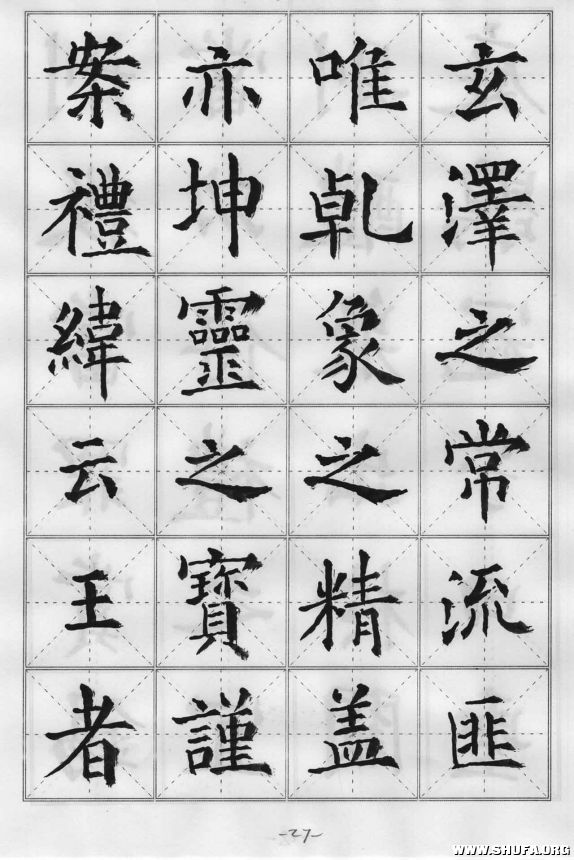 玄澤之常流匪
唯乹象之精盖
亦坤靈之寶謹
案禮緯云王者
-27-
WWW.SHUFA.ORG